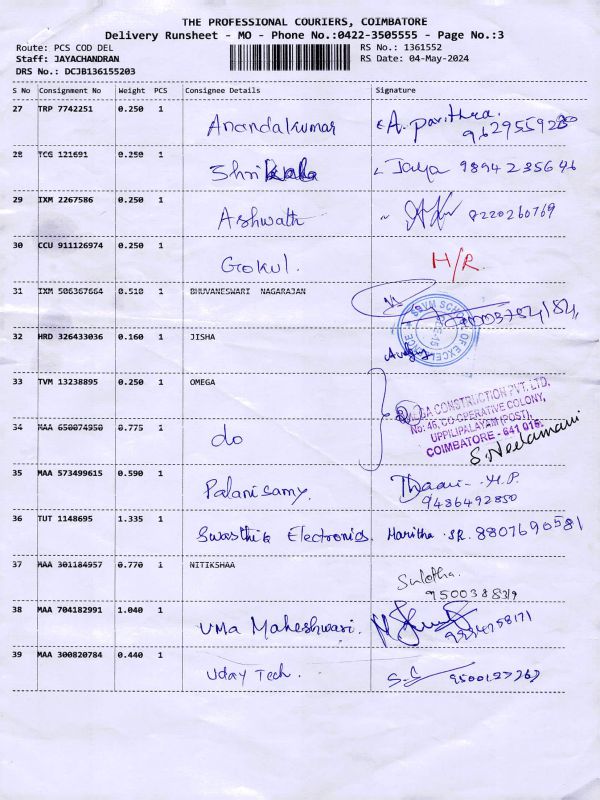 THE PROFESSIONAL COURIERS, COIMBATORE
Delivery Runsheet - MO - Phone No.:0422-3505555 - Page No.:3
Route: PCS COD DEL
RS No.: 1361552
Staff: JAYACHANDRAN
RS Date: 04-May-2024
DRS No.: DCJB136155203
S No Consignment No Weight PCS Consignee Details Signature
27 TRP 7742251 0.250 1 Anandakumar A. Pavithra.
28 TCG 121691 0.250 1 Jaya 98942 35646
29 IXM 2267586 0.250 1 Ashwath 8220260769
30 CCU 911126974 0.250 1 Gokul. H/R.
31 IXM 506367664 0.510 1 BHUVANESWARI NAGARAJAN
SSVM SCHOOL OF EXCELLENCE
32 HRD 326433036 0.160 1 JISHA
33 TVM 13238895 0.250 1 OMEGA
OMEGA CONSTRUCTION PVT. LTD,
No: 46, CO-OPERATIVE COLONY,
UPPILIPALAYAM (POST),
COIMBATORE - 641 015.
34 MAA 650074950 0.775 1 do S. Neelamani
35 MAA 573499615 0.590 1 Palanisamy. M.P.
9486492850
36 TUT 1148695 1.335 1 Swasthik Electronics. Haritha. SR. 8807690581
37 MAA 301184957 0.770 1 NITIKSHAA Sulotha.
38 MAA 704182991 1.040 1 UMa Maheshwari.
39 MAA 300820784 0.440 1 Uday Tech. S.S